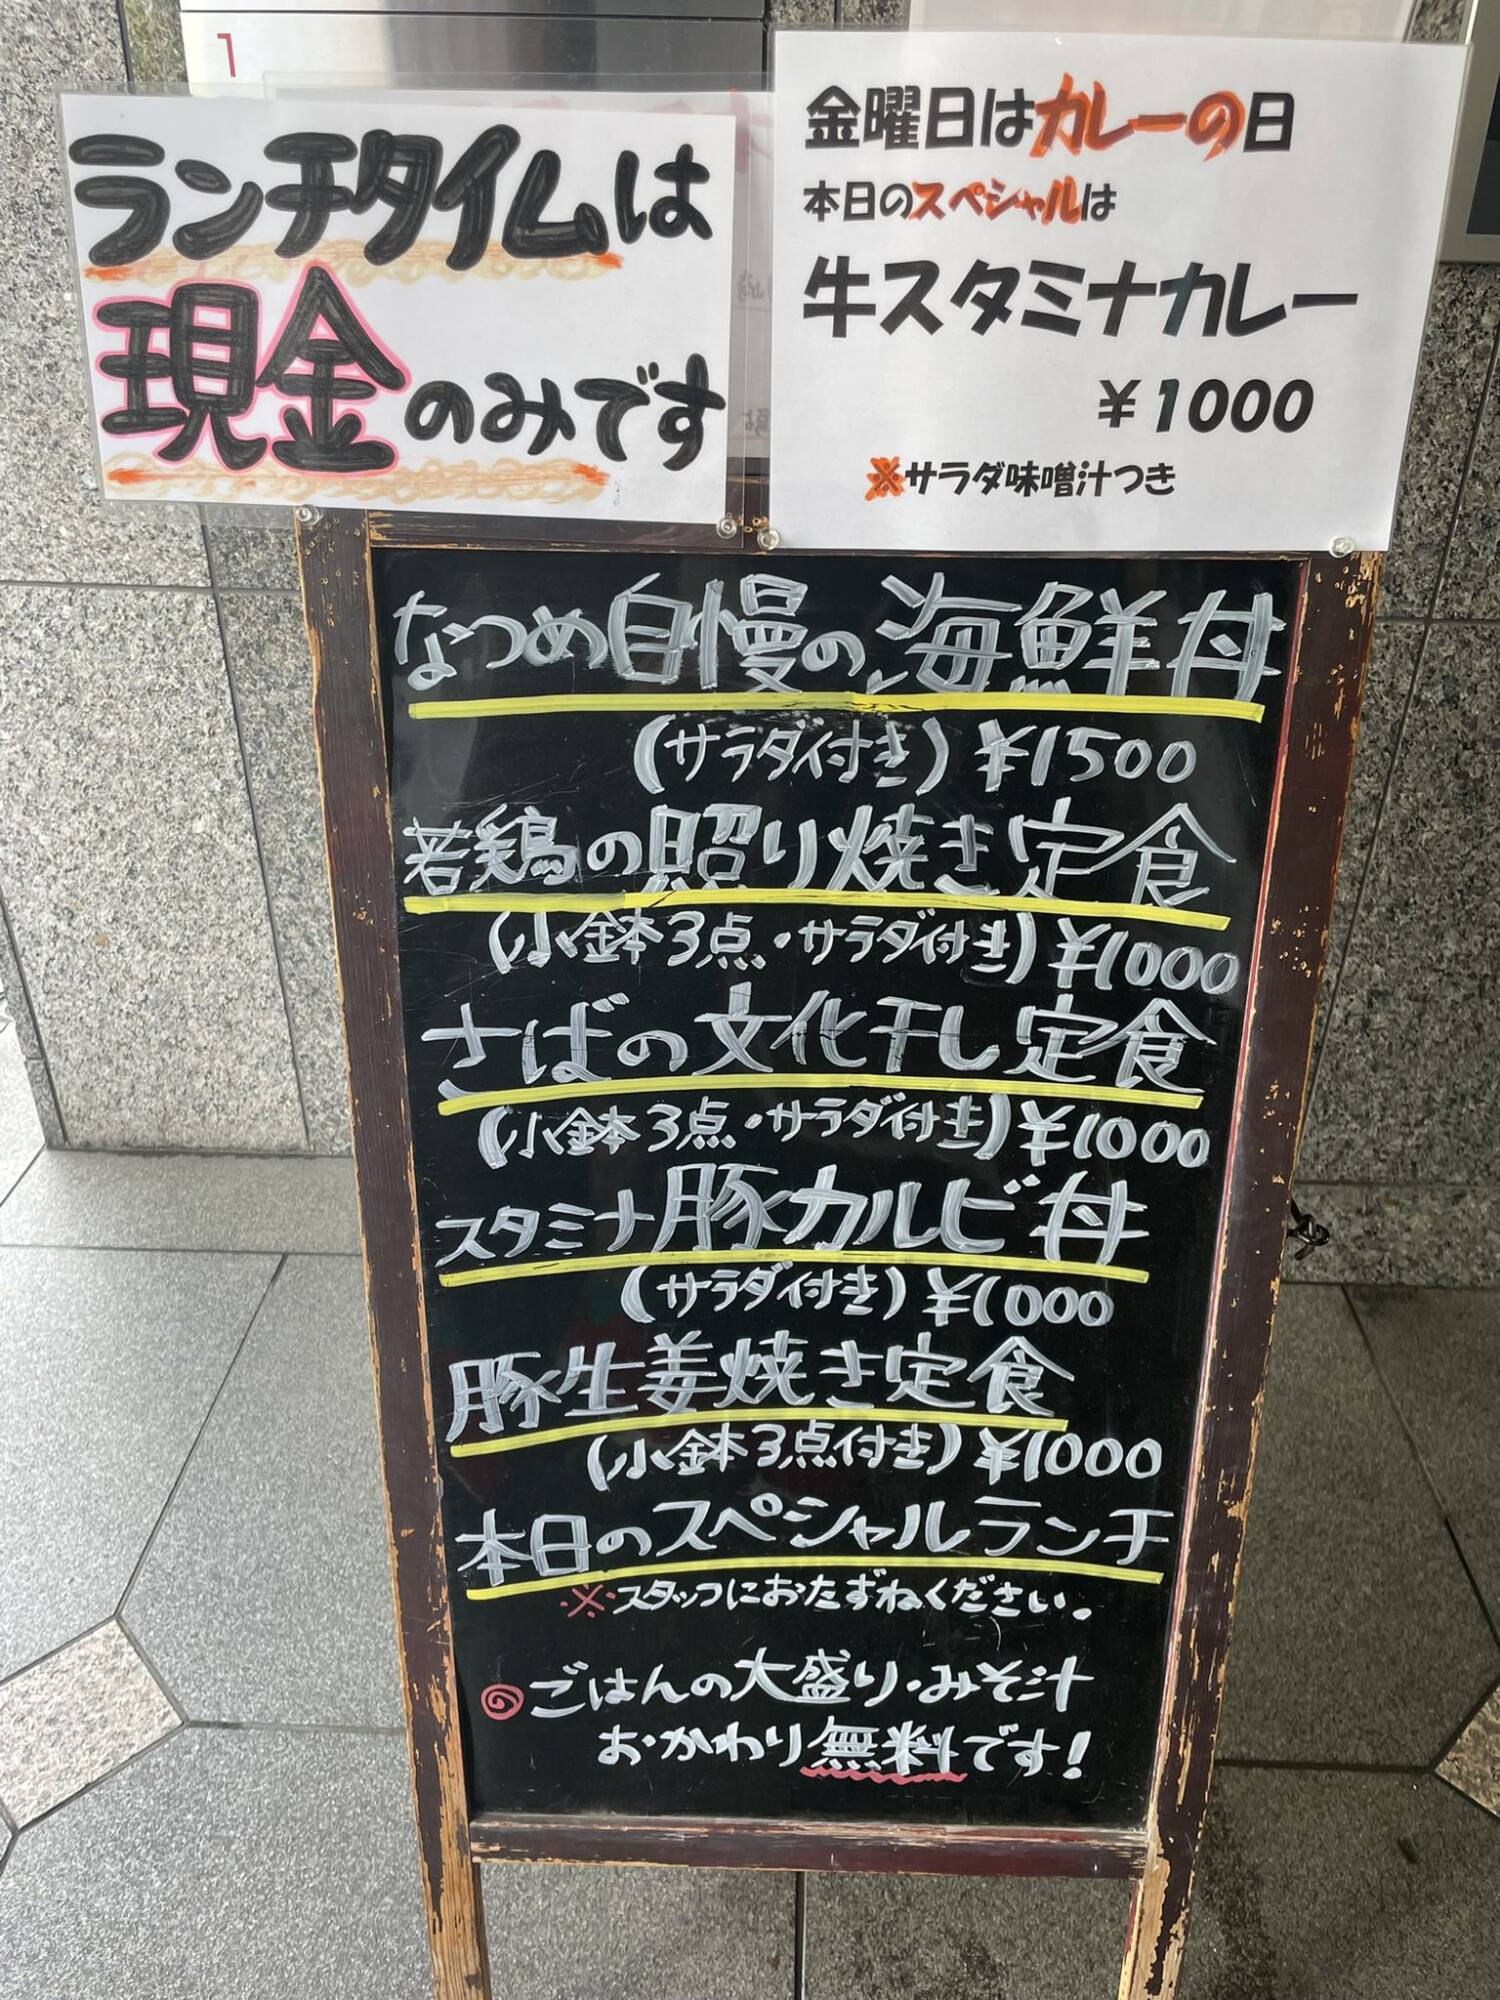 1
ランチタイムは
現金のみです
金曜日はカレーの日
本日のスペシャルは
牛スタミナカレー
¥1000
※サラダ味噌汁つき
なつめ自慢の海鮮丼
(サラダ付き) ¥1500
若鶏の照り焼き定食
(小鉢3点・サラダ付き) ¥1000
さばの文化干し定食
(小鉢3点・サラダ付き) ¥1000
スタミナ豚カルビ丼
(サラダ付き) ¥1000
豚生姜焼き定食
(小鉢3点付き) ¥1000
本日のスペシャルランチ
※スタッフにおたずねください。
◎ごはんの大盛り・みそ汁
おかわり無料です!